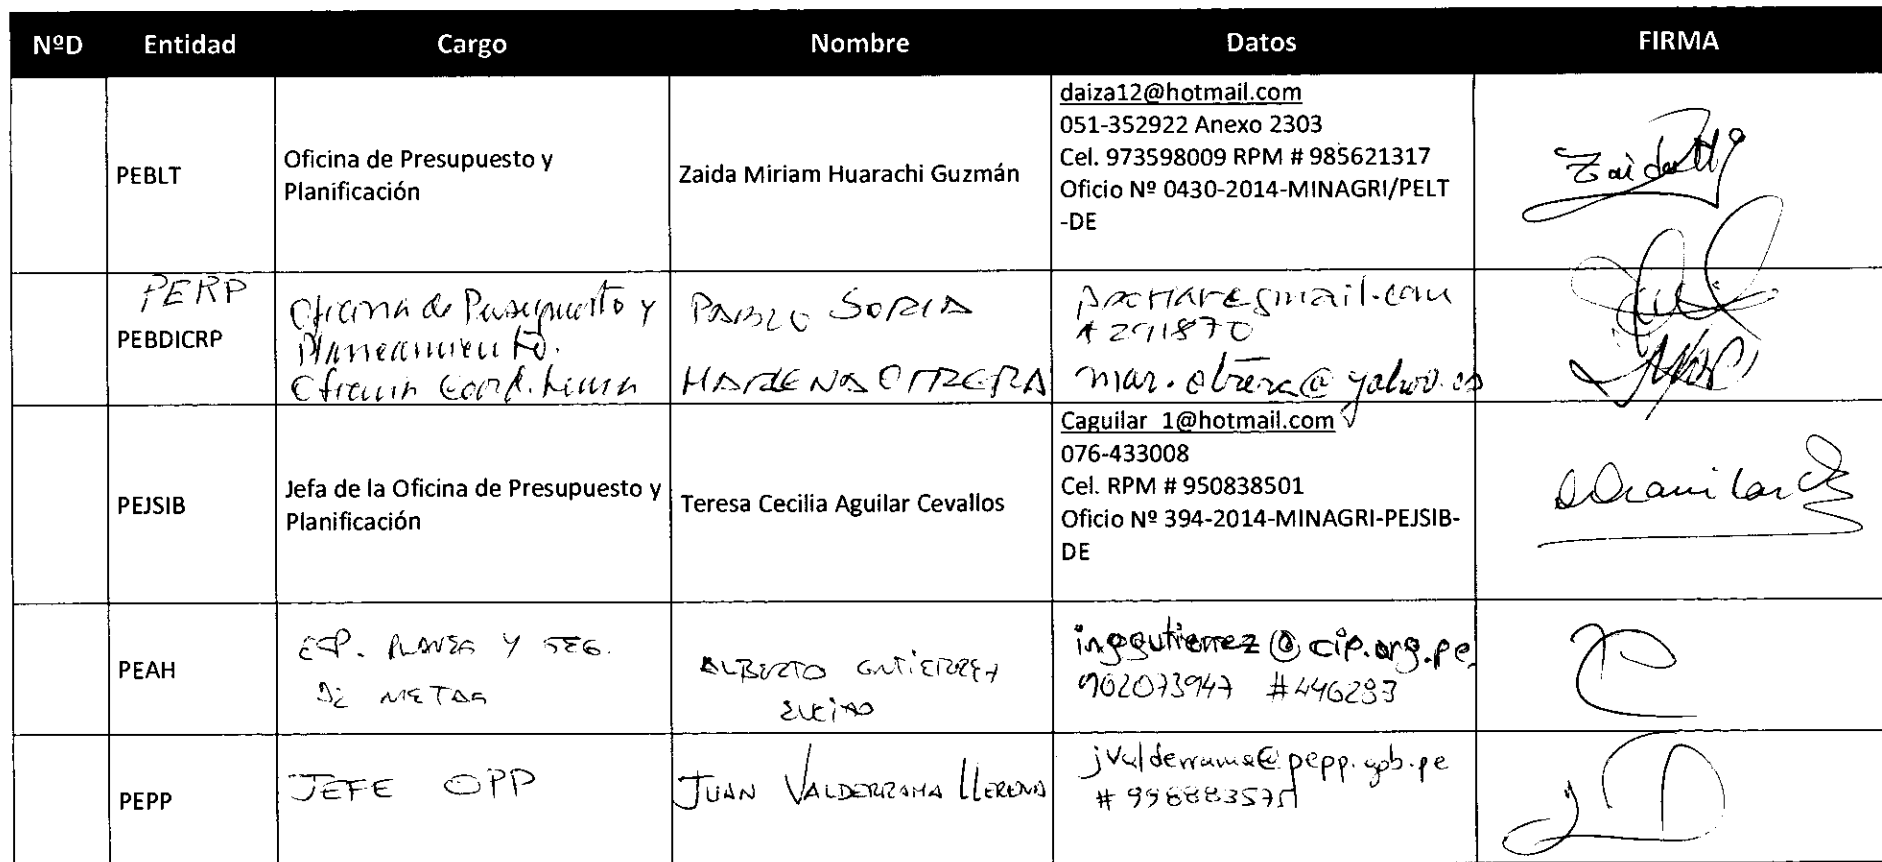 NºD Entidad Cargo Nombre Datos FIRMA
PEBLT
Oficina de Presupuesto y
Planificación
Zaida Miriam Huarachi Guzmán
daiza12@hotmail.com
051-352922 Anexo 2303
Cel. 973598009 RPM # 985621317
Oficio Nº 0430-2014-MINAGRI/PELT
-DE
PERP
PEBDICRP
Oficina de Presupuesto y
Planeamiento.
Oficina Coord. Lima
PABLO SORIA
291870
PEJSIB
Jefa de la Oficina de Presupuesto y
Planificación
Teresa Cecilia Aguilar Cevallos
Caguilar_1@hotmail.com
076-433008
Cel. RPM # 950838501
Oficio Nº 394-2014-MINAGRI-PEJSIB-
DE
PEAH
ESP. PLANES Y SEG.
DE METAS
ALBERTO GUTIERREZ
inggutierrez@cip.org.pe
#446293
PEPP
JEFE OPP
JUAN VALDERRAMA LLERENA
jvalderrama@pepp.gob.pe